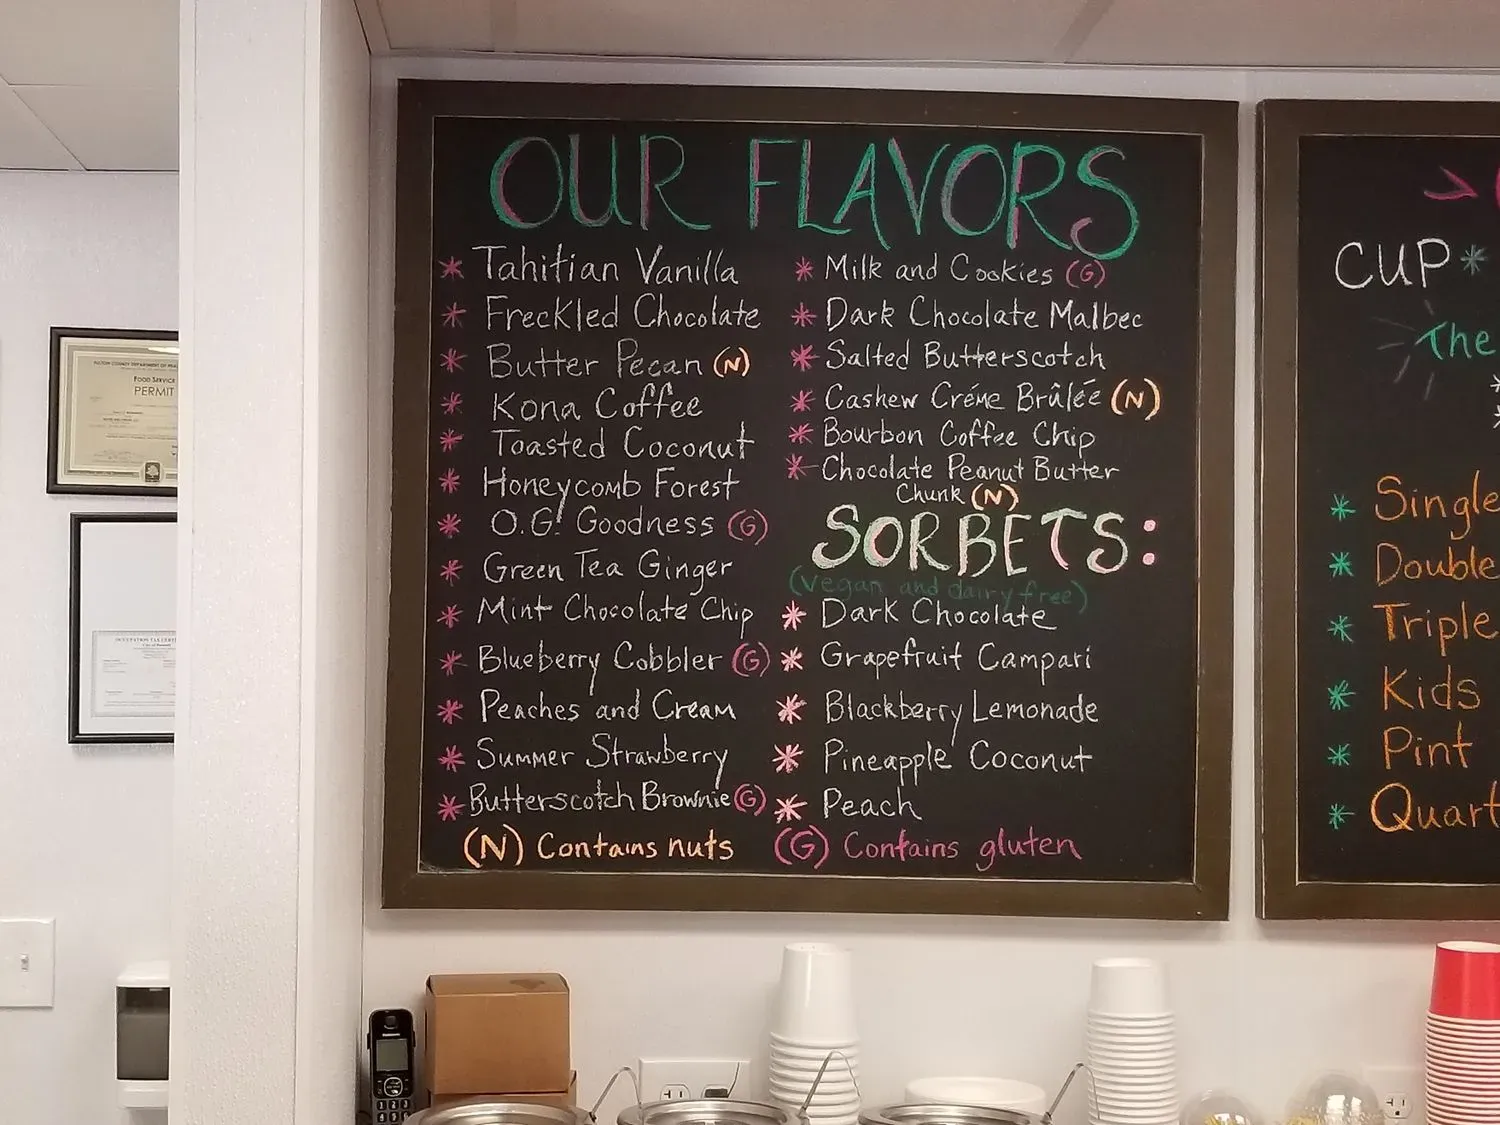 OUR FLAVORS
* Tahitian Vanilla
* Freckled Chocolate
* Butter Pecan (N)
* Kona Coffee
* Toasted Coconut
* Honeycomb Forest
* O.G. Goodness (G)
* Green Tea Ginger
* Mint Chocolate Chip
* Blueberry Cobbler (G)
* Peaches and Cream
* Summer Strawberry
* Butterscotch Brownie (G)
(N) Contains nuts
* Milk and Cookies (G)
* Dark Chocolate Malbec
* Salted Butterscotch
* Cashew Créme Brûlée (N)
* Bourbon Coffee Chip
* Chocolate Peanut Butter
Chunk (N)
SORBETS:
(vegan and dairy free)
* Dark Chocolate
* Grapefruit Campari
* Blackberry Lemonade
* Pineapple Coconut
* Peach
(G) Contains gluten
CUP *
The
* Single
* Double
* Triple
* Kids
* Pint
* Quart
FULTON COUNTY DEPARTMENT OF
FOOD SERVICE
PERMIT
OCCUPATION TAX